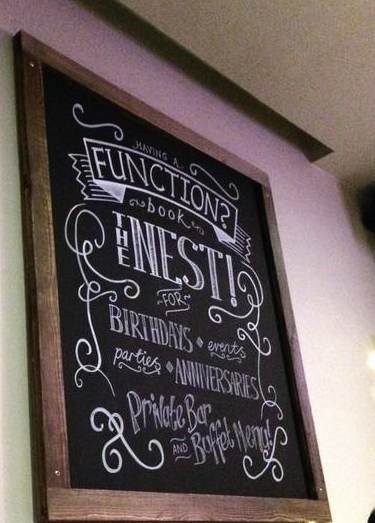 HAVING A
FUNCTION?
book
THE NEST!
FOR
BIRTHDAYS • events
parties • ANNIVERSARIES
Private Bar
AND Buffet Menu!